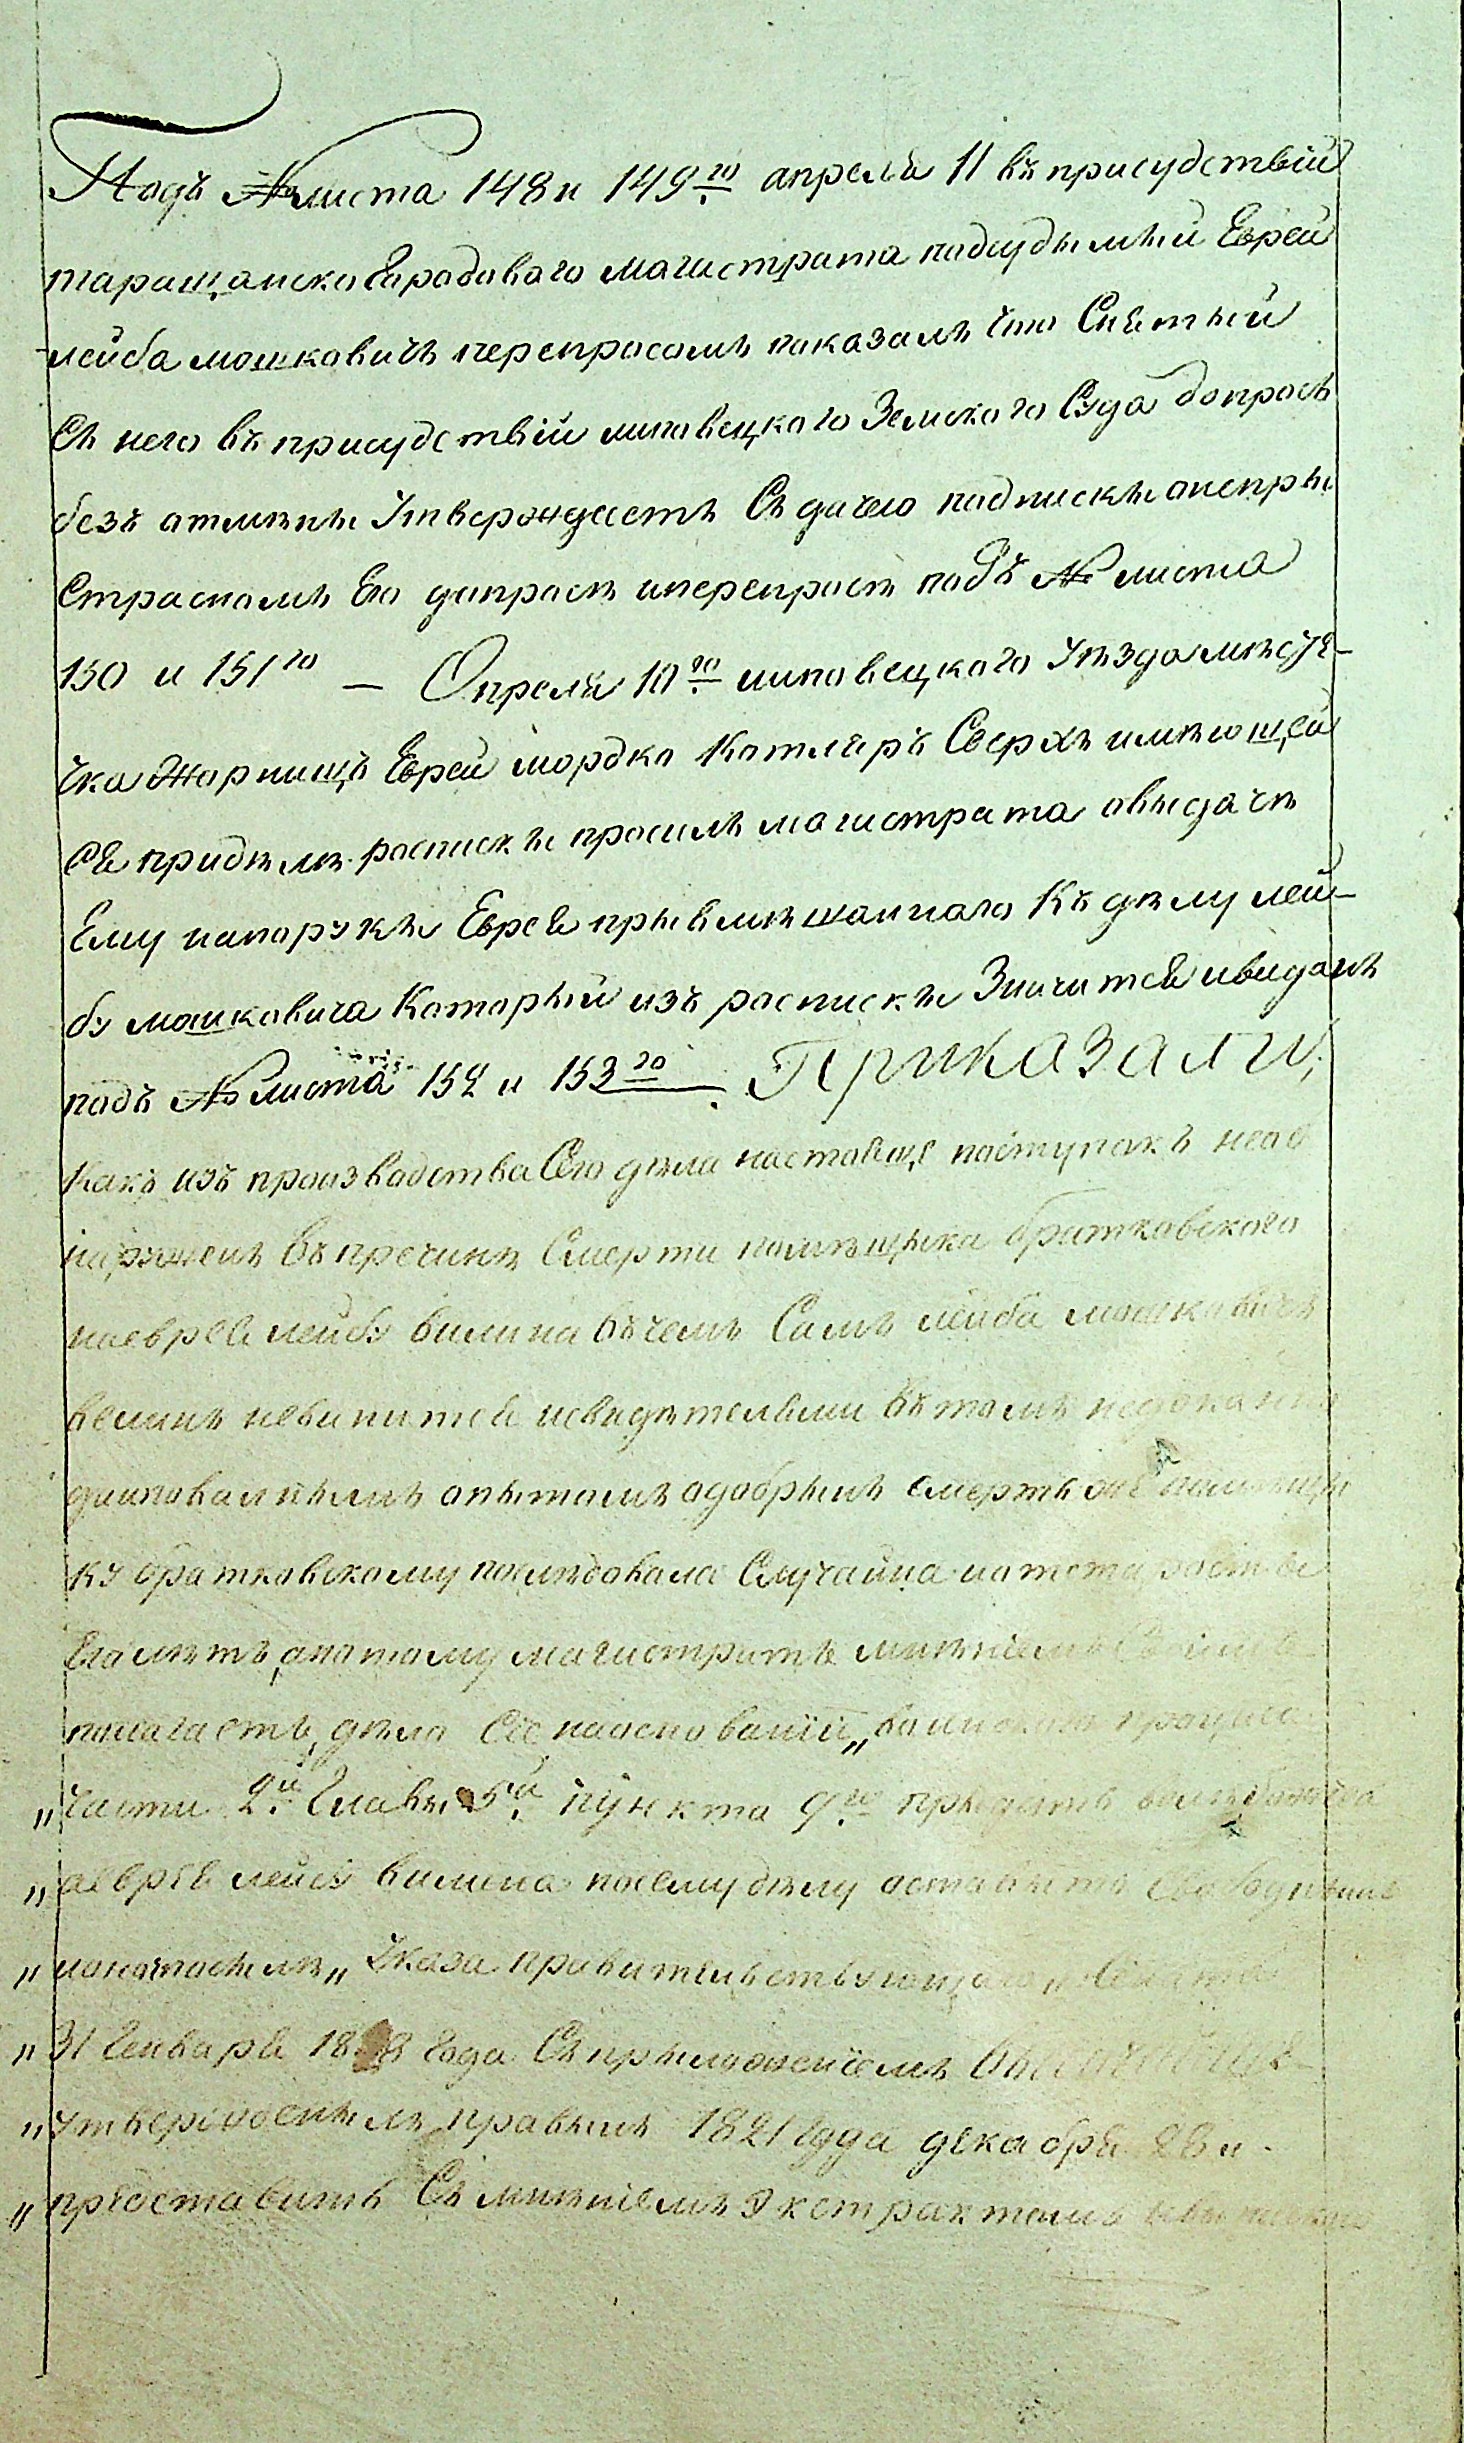 Подъ № листа 148 и 149го апреля 11 въ присудствіи
таращанско Городоваго магистрата подсудымый Еврей
лейба мошковичъ перепросомъ показалъ что Снятый
Съ него въ присудствіи липовецкого Земского Суда допросъ
безъ отмены Утверждаетъ Съ дачею подписки онепры
Страсномъ Его допросъ иперепросъ подъ № листа
150 и 151го — Опреля 10го липовецкого Уезда месте-
чка Жорнищъ Еврей мордко Котляръ Сверхъ имеющей
ся придѣлѣ росписки просилъ магистрата овыдаче
Ему напоруки Еврея прывмешаннаго Къ делу лей-
бу мошковича Который изъ росписки Значится ивиданъ
подъ № листа 152 и 153го Приказали,
Какъ изъ производства Сего дела настоящe поступокъ необ
наружен въпречине Смерти помещыка братковского
наеврея лейбу вилина въчемъ Самъ лейба мошковичъ
велинъ невинится исвидетелями Въ томъ недоказано
опытомъ одобрымъ Смерть же помещы
ку братковскому последовала Случайна постаростве
Его летъ, апотому магистратъ мнениемъ Своимъ
полагаетъ, дело Сіе наосновании „воинскихъ процесс
„Части 2й Главы 5й пункта 9го предать воли божіей
„аеврея лейбу вилина посему делу оставить Свободнымъ
„ „Указа правительствующаго „Сената
„31 Генваря 18 8 Года Съ прыложенiемъ
„Утвержденымъ правилъ 1821 Года декабря 28 и
„предоставить Съ мнениемъ Экстрактомъ